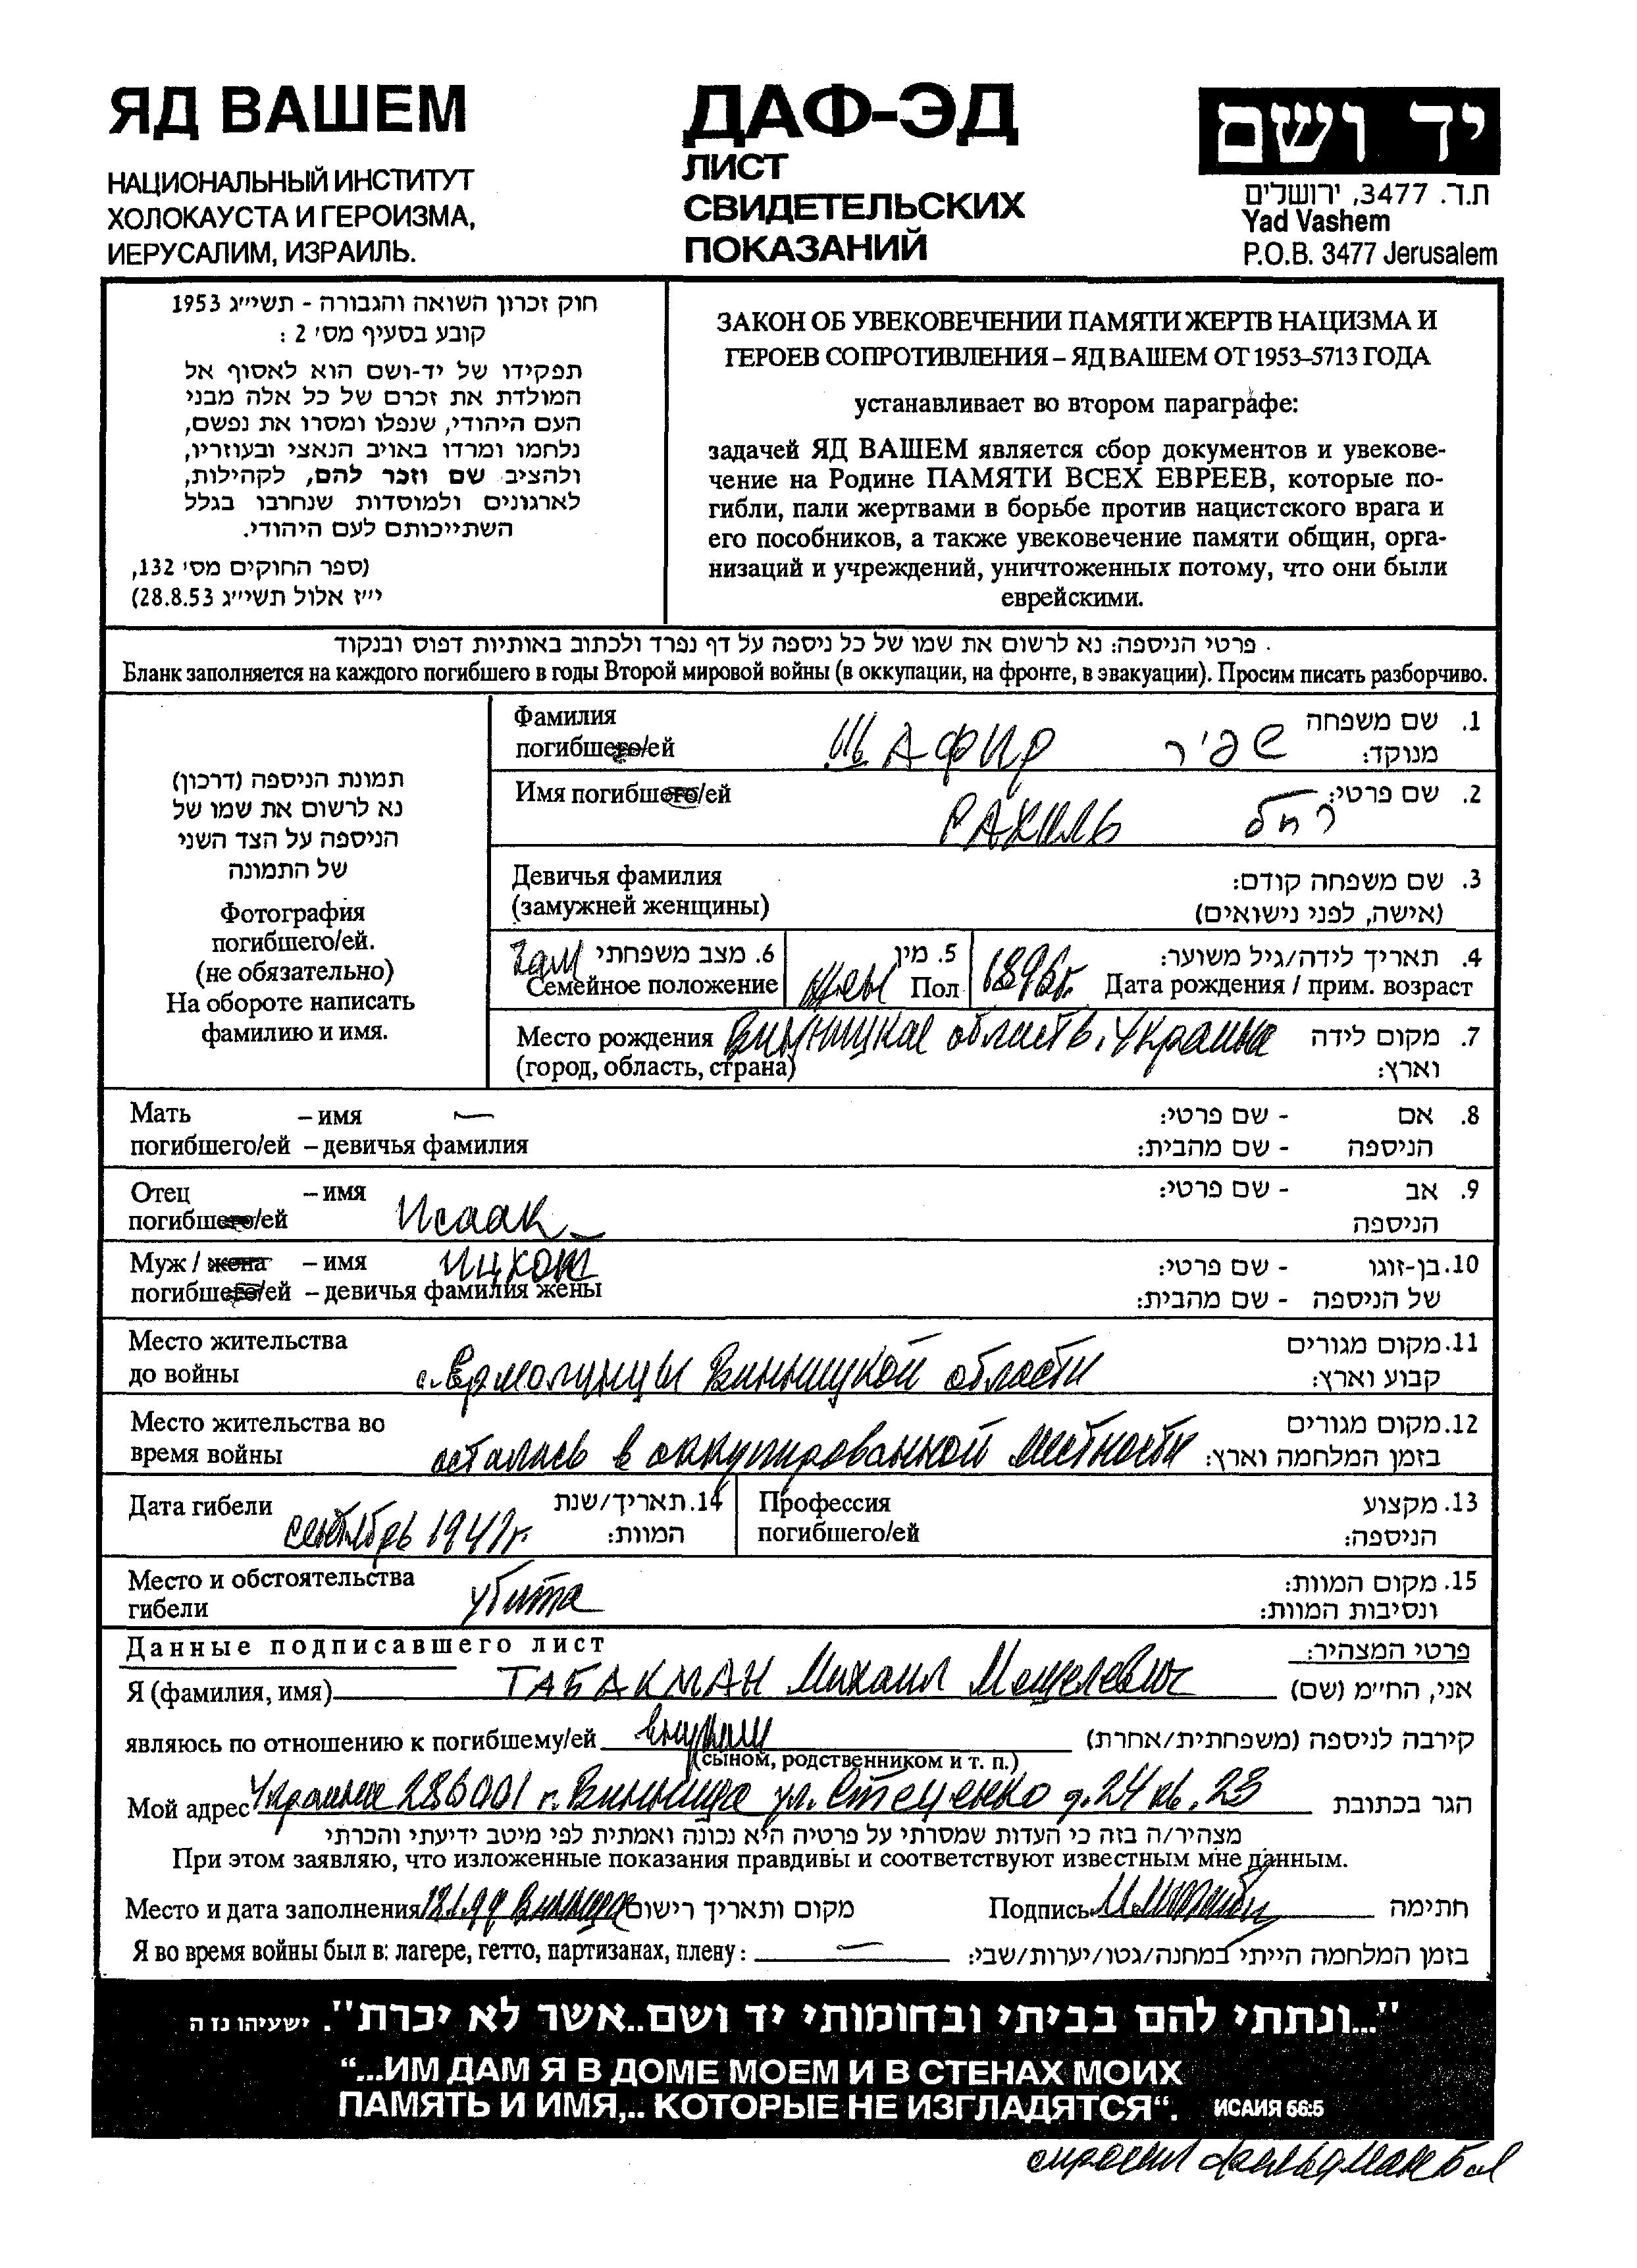 ЯД ВАШЕМ
НАЦИОНАЛЬНЫЙ ИНСТИТУТ
ХОЛОКАУСТА И ГЕРОИЗМА,
ИЕРУСАЛИМ, ИЗРАИЛЬ.
ДАФ-ЭД
ЛИСТ
СВИДЕТЕЛЬСКИХ
ПОКАЗАНИЙ
יד ושם
ת.ד. 3477, ירושלים
Yad Vashem
P.O.B. 3477 Jerusalem
חוק זכרון השואה והגבורה - תשי״ג 1953
קובע בסעיף מס׳ 2 :
תפקידו של יד-ושם הוא לאסוף אל
המולדת את זכרם של כל אלה מבני
העם היהודי, שנפלו ומסרו את נפשם,
נלחמו ומרדו באויב הנאצי ובעוזריו,
ולהציב שם וזכר להם, לקהילות,
לארגונים ולמוסדות שנחרבו בגלל
השתייכותם לעם היהודי.
(ספר החוקים מס׳ 132,
י״ז אלול תשי״ג 28.8.53)
ЗАКОН ОБ УВЕКОВЕЧЕНИИ ПАМЯТИ ЖЕРТВ НАЦИЗМА И
ГЕРОЕВ СОПРОТИВЛЕНИЯ – ЯД ВАШЕМ ОТ 1953–5713 ГОДА
устанавливает во втором параграфе:
задачей ЯД ВАШЕМ является сбор документов и увекове-
чение на Родине ПАМЯТИ ВСЕХ ЕВРЕЕВ, которые по-
гибли, пали жертвами в борьбе против нацистского врага и
его пособников, а также увековечение памяти общин, орга-
низаций и учреждений, уничтоженных потому, что они были
еврейскими.
פרטי הניספה: נא לרשום את שמו של כל ניספה על דף נפרד ולכתוב באותיות דפוס ובנקוד
Бланк заполняется на каждого погибшего в годы Второй мировой войны (в оккупации, на фронте, в эвакуации). Просим писать разборчиво.
תמונת הניספה (דרכון)
נא לרשום את שמו של
הניספה על הצד השני
של התמונה
Фотография
погибшего/ей.
(не обязательно)
На обороте написать
фамилию и имя.
Фамилия 1. שם משפחה
погибшего/ей ШАФИР שפיר מנוקד:
Имя погибшего/ей РАХИЛЬ רחל 2. שם פרטי:
Девичья фамилия 3. שם משפחה קודם:
(замужней женщины) (אישה, לפני נישואים)
зам 6. מצב משפחתי 5. מין 4. תאריך לידה/גיל משוער:
Семейное положение жен Пол 1896г. Дата рождения / прим. возраст
Место рождения Винницкая область, Украина 7. מקום לידה
(город, область, страна) וארץ:
Мать – имя — - שם פרטי: 8. אם
погибшего/ей – девичья фамилия - שם מהבית: הניספה
Отец – имя - שם פרטי: 9. אב
погибшего/ей Исаак הניספה
Муж / жена – имя Ицхок - שם פרטי: 10. בן-זוגו
погибшего/ей – девичья фамилия жены - שם מהבית: של הניספה
Место жительства 11. מקום מגורים
до войны с. Ермолинцы Винницкой области קבוע וארץ:
Место жительства во 12. מקום מגורים
время войны осталась в оккупированной местности בזמן המלחמה וארץ:
Дата гибели сентябрь 1941г. 14. תאריך/שנת Профессия 13. מקצוע
המוות: погибшего/ей הניספה:
Место и обстоятельства 15. מקום המוות:
гибели убита ונסיבות המוות:
Данные подписавшего лист פרטי המצהיר:
Я (фамилия, имя) ТАБАКМАН Михаил Мошелевич אני, הח״מ (שם)
являюсь по отношению к погибшему/ей внуком קירבה לניספה (משפחתית/אחרת)
(сыном, родственником и т. п.)
Мой адрес Украина 286001 г. Винница ул. Стеценко д. 24 кв. 23 הגר בכתובת
מצהיר/ה בזה כי העדות שמסרתי על פרטיה היא נכונה ואמתית לפי מיטב ידיעתי והכרתי
При этом заявляю, что изложенные показания правдивы и соответствуют известным мне данным.
Место и дата заполнения Винница מקום ותאריך רישום Подпись חתימה
Я во время войны был в: лагере, гетто, партизанах, плену: — בזמן המלחמה הייתי במחנה/גטו/יערות/שבי:
"...ונתתי להם בביתי ובחומותי יד ושם..אשר לא יכרת". ישעיהו נז ה
“...ИМ ДАМ Я В ДОМЕ МОЕМ И В СТЕНАХ МОИХ
ПАМЯТЬ И ИМЯ,.. КОТОРЫЕ НЕ ИЗГЛАДЯТСЯ“. ИСАИЯ 56:5